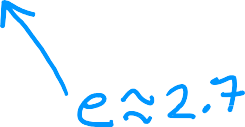 e ≈ 2.7